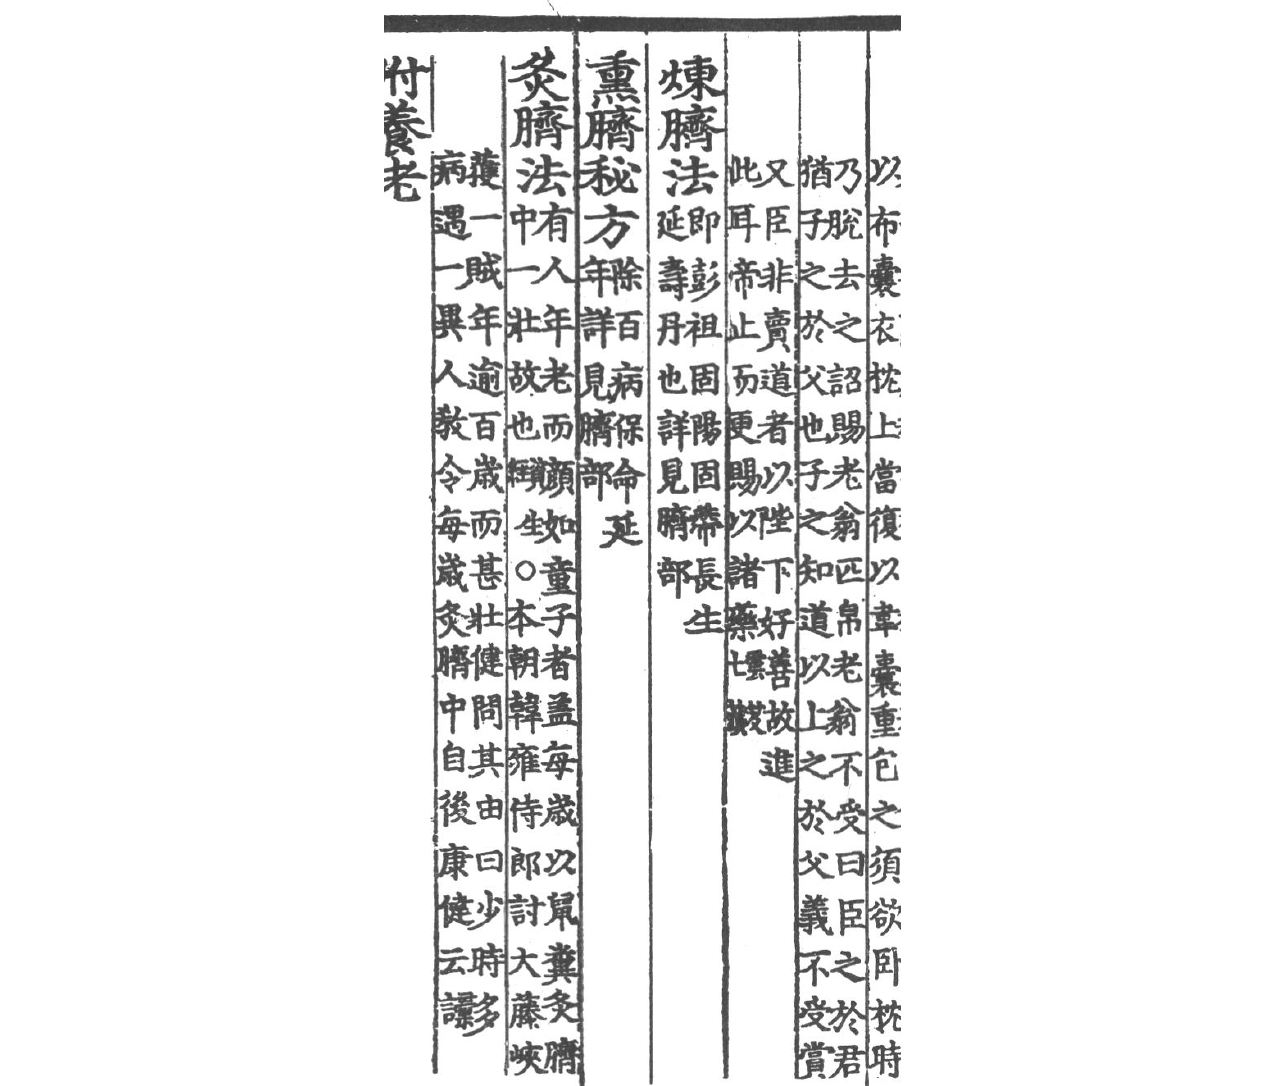 以布囊衣枕上當復以韋囊重包之須欲臥枕時
乃脫去之詔賜老翁匹帛老翁不受曰臣之於君
猶子之於父也子之知道以上之於父義不受賞
又臣非賣道者以陛下好善故進
此耳帝止而更賜以諸藥雲笈七籤
煉臍法即彭祖固陽固蔕長生
延壽丹也詳見臍部
熏臍秘方除百病保命延
年詳見臍部
灸臍法有人年老而顔如童子者盖每歲以鼠糞灸臍
中一壯故也資生經○本朝韓雍侍郎討大藤峽
獲一賊年逾百歲而甚壯健問其由曰少時多
病遇一異人敎令每歲灸臍中自後康健云彙言
附養老